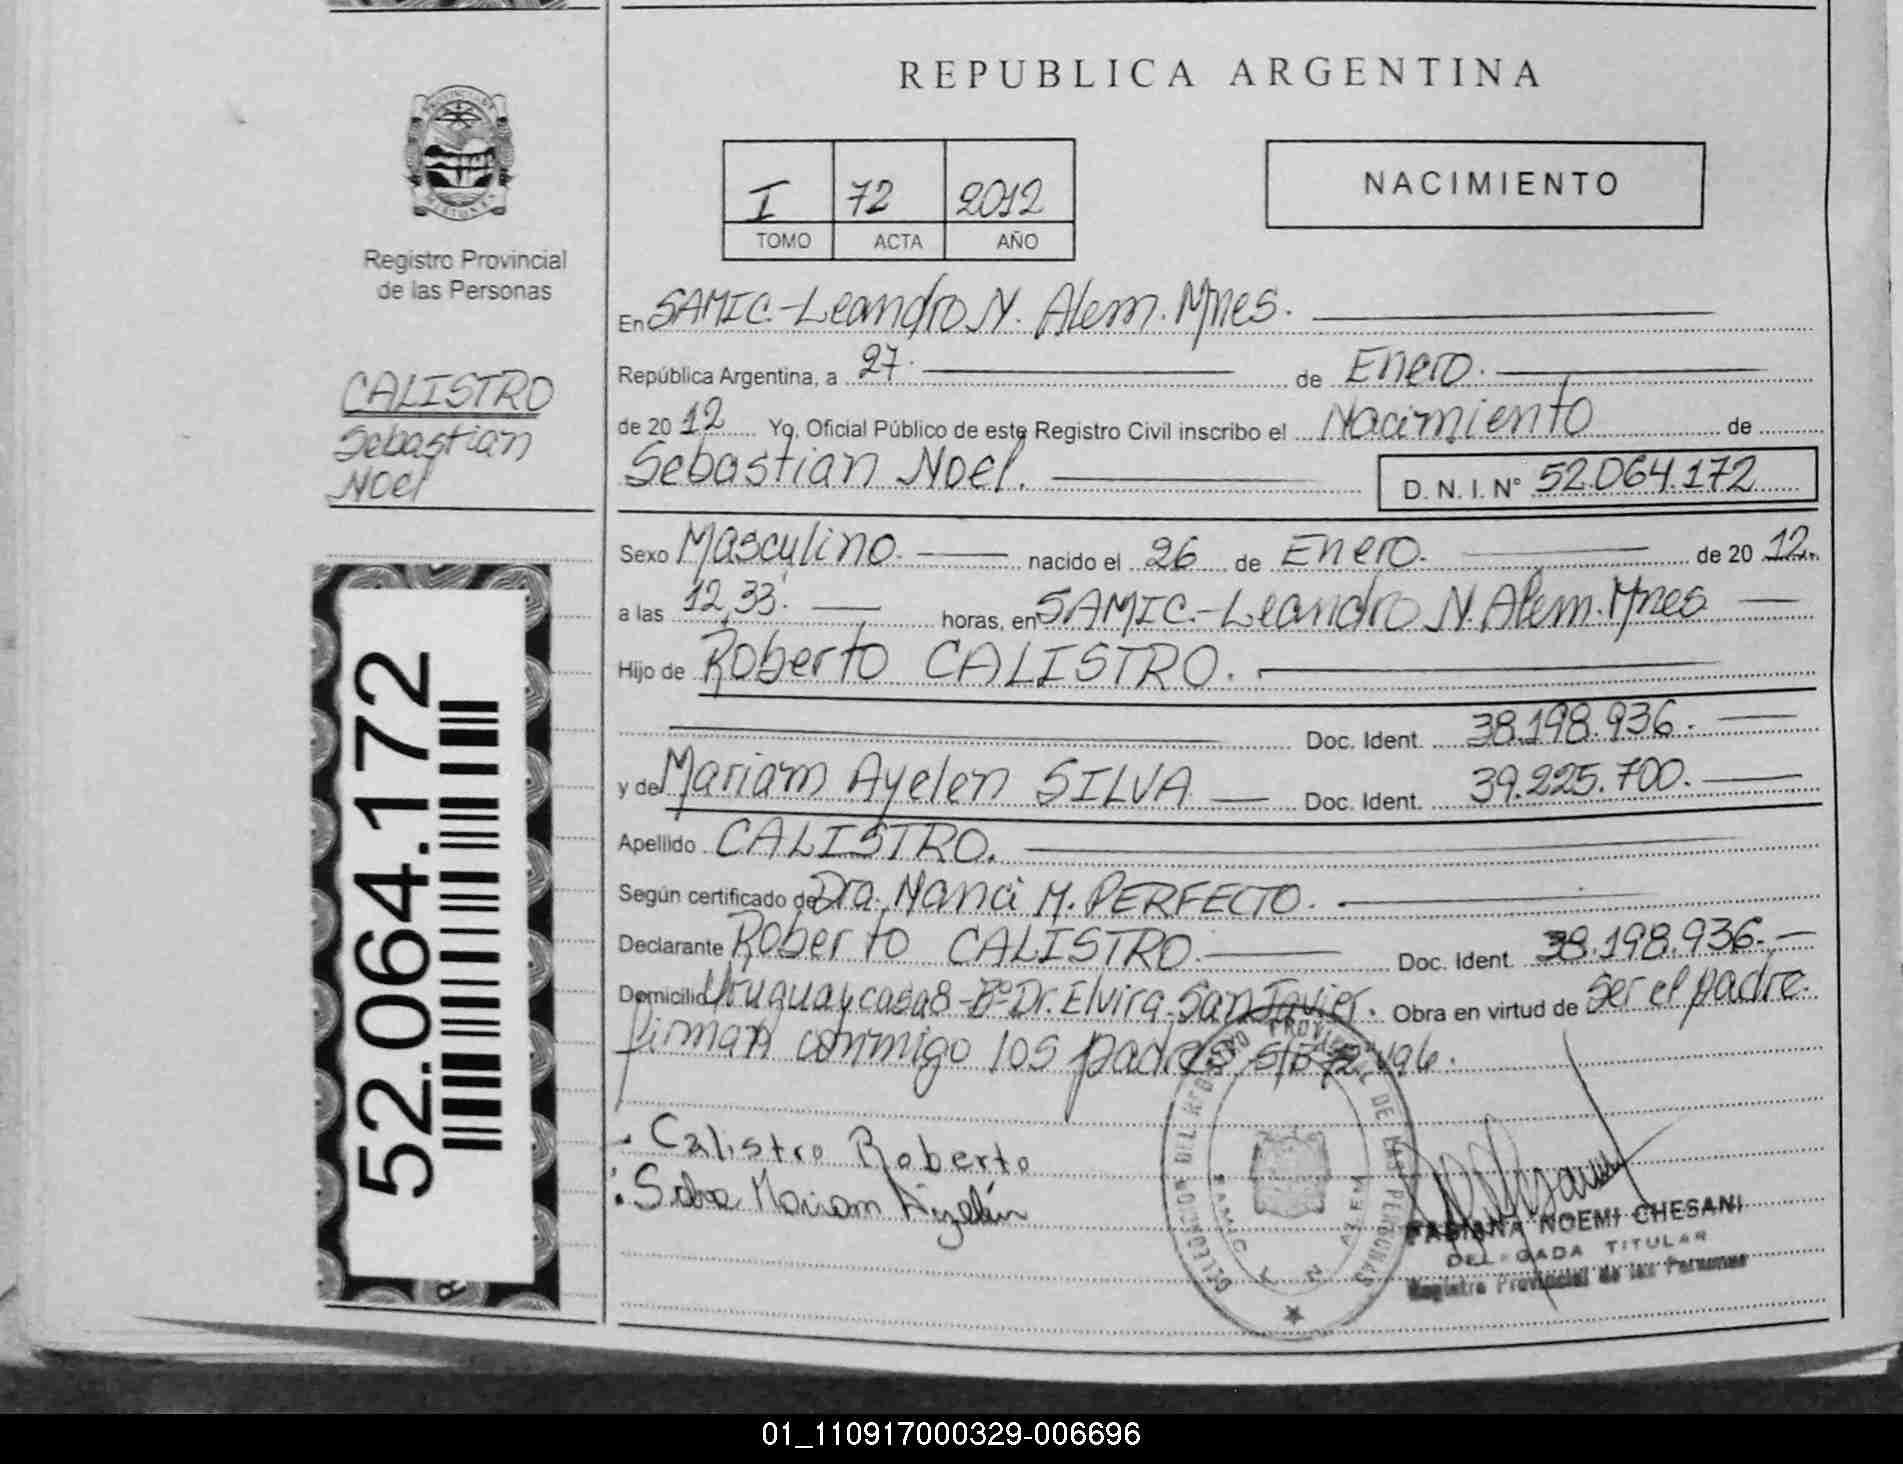 REPUBLICA ARGENTINA
I 72 2012
TOMO ACTA AÑO
NACIMIENTO
Registro Provincial
de las Personas
CALISTRO
Sebastian
Noel
52.064.172
En SAMIC-Leandro N. Alem. Mnes.
República Argentina, a 27. de Enero.
de 2012 Yo, Oficial Público de este Registro Civil inscribo el Nacimiento de
Sebastian Noel. D. N. I. N° 52.064.172
Sexo Masculino. nacido el 26 de Enero. de 2012.
a las 12,33. horas, en SAMIC.-Leandro N. Alem. Mnes
Hijo de Roberto CALISTRO.
Doc. Ident. 38.198.936.
y de Mariam Ayelen SILVA Doc. Ident. 39.225.700.
Apellido CALISTRO.
Según certificado de Dra. Nanci M. PERFECTO.
Declarante Roberto CALISTRO. Doc. Ident. 38.198.936.
Domicilio Uruguay casa 8-B° Dr. Elvira-San Javier. Obra en virtud de Ser el padre.
firman conmigo los padres
DELEGACION DEL REGISTRO PROVINCIAL DE LAS PERSONAS
SAMIC L. N. ALEM
. Calistro Roberto
: Mariam Ayelén
FABIANA NOEMI CHESANI
DELEGADA TITULAR
Registro Provincial de las Personas
01_110917000329-006696